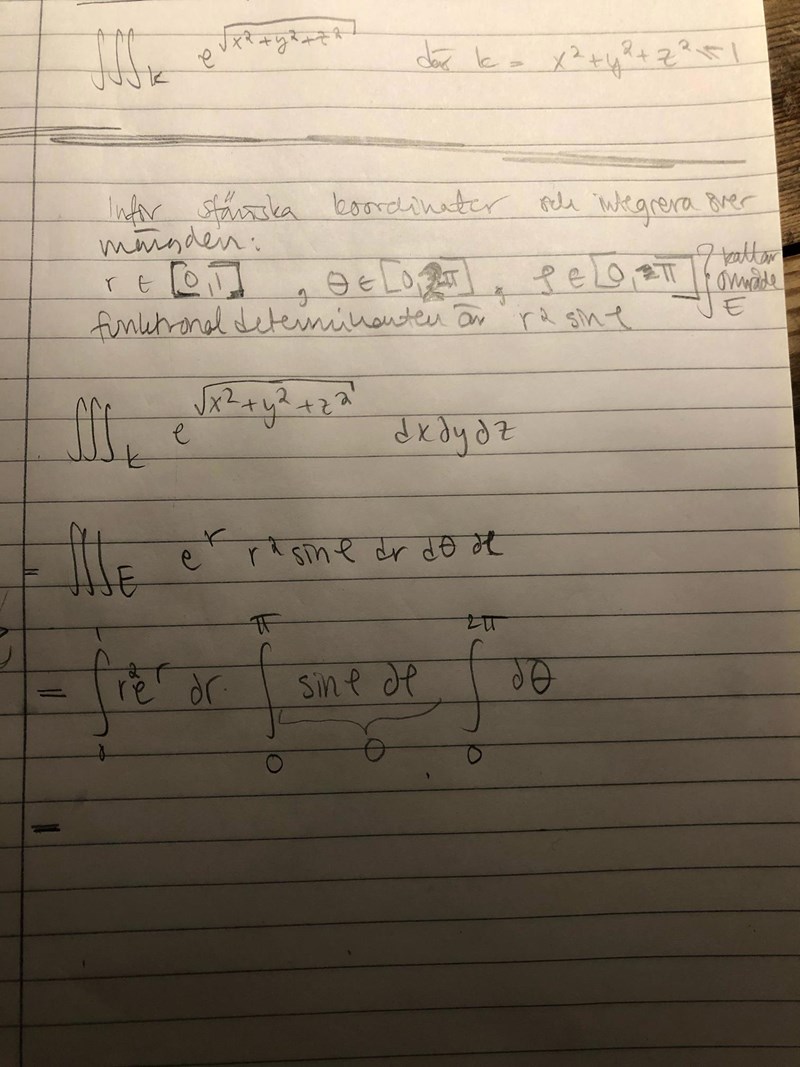 ∭_K e^{√(x²+y²+z²)} där K = x²+y²+z² ≤ 1
Inför sfäriska koordinater och integrera över
mängden:
r ∈ [0,1] , θ ∈ [0,2π] , φ ∈ [0, π] } kallar området E
funktionaldeterminanten är r² sinφ
∭_K e^{√(x²+y²+z²)} dxdydz
= ∭_E e^r r² sinφ dr dθ dφ
= ∫_0^1 r²e^r dr · ∫_0^π sinφ dφ ∫_0^{2π} dθ
0
=